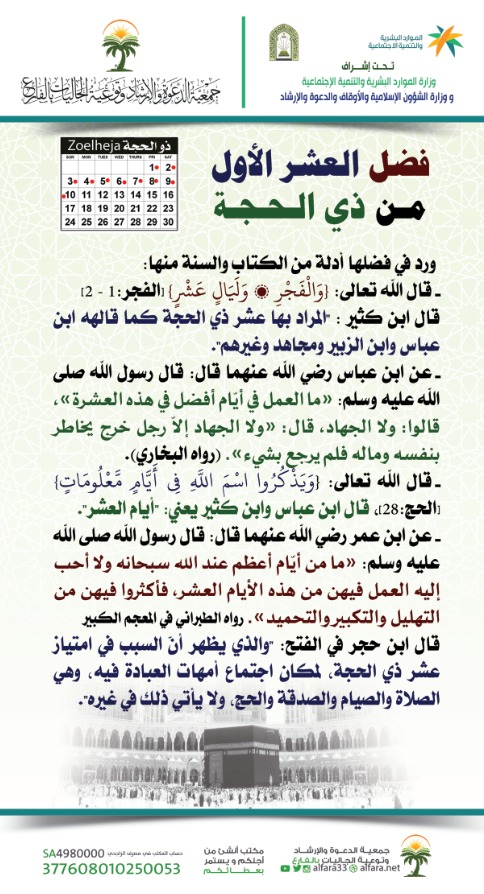 الموارد البشرية
والتنمية الاجتماعية
تحت إشراف
وزارة الموارد البشرية والتنمية الإجتماعية
و وزارة الشؤون الإسلامية والأوقاف والدعوة والإرشاد
جمعية الدعوة والإرشاد وتوعية الجاليات بالفارع
فضل العشر الأول
من ذي الحجة
ذو الحجة Zoelheja
SUN MON TUES WED THU FRI SAT
1 2
3 4 5 6 7 8 9
10 11 12 13 14 15 16
17 18 19 20 21 22 23
24 25 26 27 28 29 30
ورد في فضلها أدلة من الكتاب والسنة منها:
ـ قال الله تعالى: {وَالْفَجْرِ ۞ وَلَيَالٍ عَشْرٍ} [الفجر:1 - 2]
قال ابن كثير : "المراد بها عشر ذي الحجة كما قالهه ابن
عباس وابن الزبير ومجاهد وغيرهم".
ـ عن ابن عباس رضي الله عنهما قال: قال رسول الله صلى
الله عليه وسلم: «ما العمل في أيّام أفضل في هذه العشرة»،
قالوا: ولا الجهاد، قال: «ولا الجهاد إلاّ رجل خرج يخاطر
بنفسه وماله فلم يرجع بشيء». (رواه البخاري).
ـ قال الله تعالى: {وَيَذْكُرُوا اسْمَ اللَّهِ فِي أَيَّامٍ مَّعْلُومَاتٍ}
[الحج:28]، قال ابن عباس وابن كثير يعني: "أيام العشر".
ـ عن ابن عمر رضي الله عنهما قال: قال رسول الله صلى الله
عليه وسلم: «ما من أيّام أعظم عند الله سبحانه ولا أحب
إليه العمل فيهن من هذه الأيام العشر، فأكثروا فيهن من
التهليل والتكبير والتحميد». رواه الطبراني في المعجم الكبير
قال ابن حجر في الفتح: "والذي يظهر أنّ السبب في امتياز
عشر ذي الحجة، لمكان اجتماع أمهات العبادة فيه، وهي
الصلاة والصيام والصدقة والحج، ولا يأتي ذلك في غيره".
جمعية الدعوة والإرشاد
وتوعية الجاليات بالفارع
alfara33 alfara.net
مكتب أنشئ من
أجلكم و يستمر
بعطائكم
حساب المكتب في مصرف الراجحي SA4980000
377608010250053